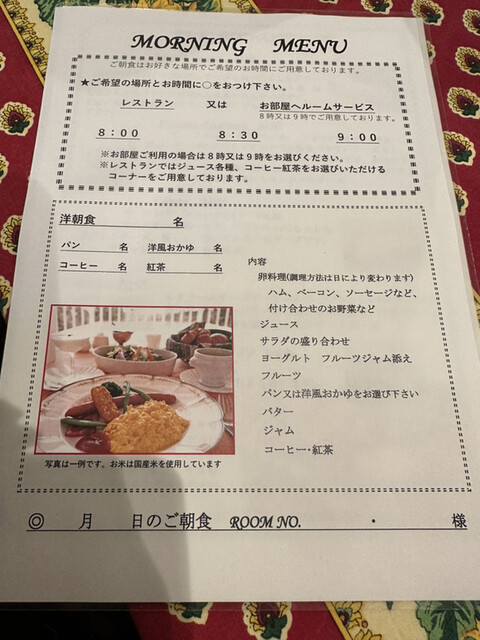 MORNING MENU
ご朝食はお好きな場所でご希望のお時間にご用意しております。
★ご希望の場所とお時間に○をおつけ下さい。
レストラン 又は お部屋へルームサービス
8時又は9時でご用意しております。
8:00 8:30 9:00
※お部屋ご利用の場合は8時又は9時をお選びください。
※レストランではジュース各種、コーヒー紅茶をお選びいただける
コーナーをご用意しております。
洋朝食 名
パン 名 洋風おかゆ 名
コーヒー 名 紅茶 名
内容
卵料理(調理方法は日により変わります)
ハム、ベーコン、ソーセージなど、
付け合わせのお野菜など
ジュース
サラダの盛り合わせ
ヨーグルト フルーツジャム添え
フルーツ
パン又は洋風おかゆをお選び下さい
バター
ジャム
コーヒー・紅茶
写真は一例です。お米は国産米を使用しています
◎ 月 日のご朝食 ROOM NO. ・ 様